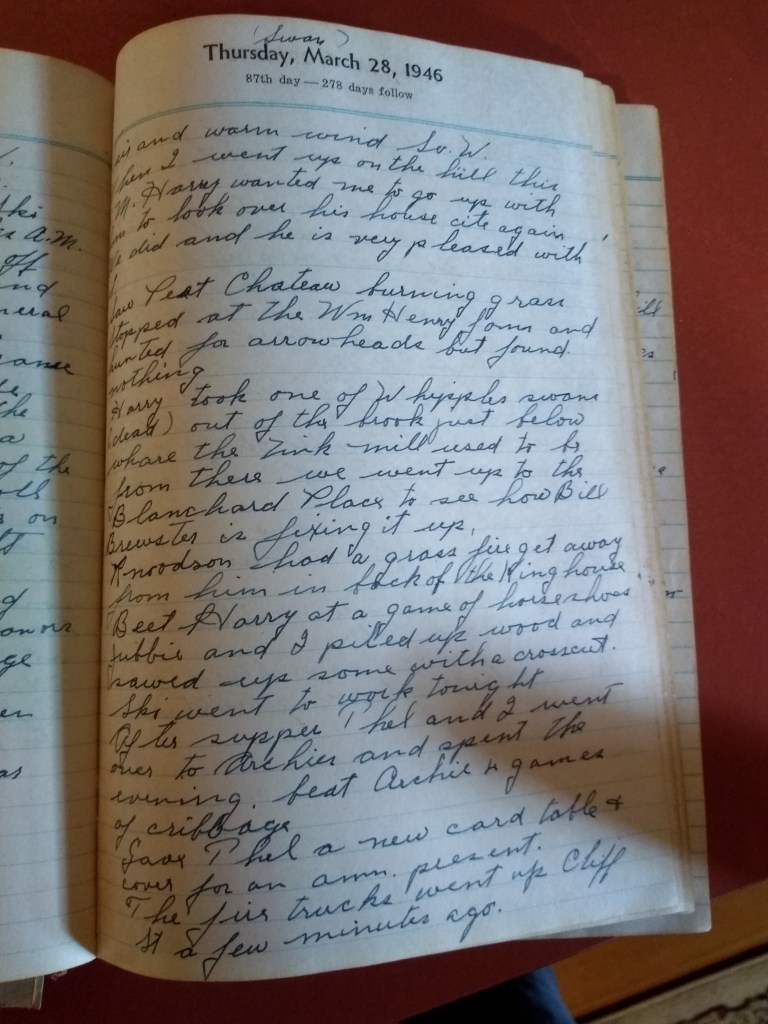 (Swan)
Thursday, March 28, 1946
87th day — 278 days follow
and warm wind So. W.
When I went up on the hill this
A.M. Harry wanted me to go up with
to look over his house cite again
We did and he is very pleased with
it
Saw Peat Chateau burning grass
stopped at the Wm Henry farm and
hunted for arrowheads but found
nothing
Harry took one of Whipples swans
(dead) out of the brook just below
whare the Zink mill used to be
from there we went up to the
Blanchard Place to see how Bill
Brewster is fixing it up.
Knoodson had a grass fire get away
from him in back of the Ring house
Beet Harry at a game of horseshoes
Tubbie and I piled up wood and
sawed up some with a crosscut.
Ski went to work tonight
After supper Phel and I went
over to Archies and spent the
evening. beat Archie 4 games
of cribbage
Gave Phel a new card table &
cover for an ann. present.
The fire trucks went up Cliff
St a few minutes ago.
ski
A.M.
off
nd
neral
eanse
be
the
a
of the
oll
is on
tt
g
age
en
as
ill
es